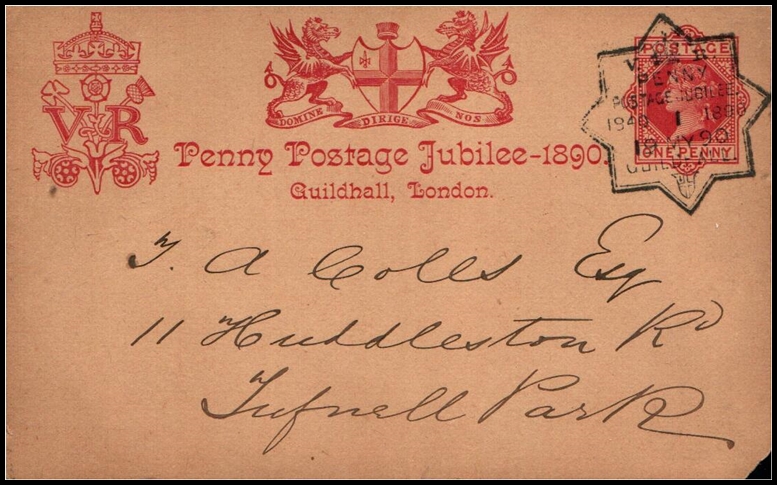 VR
DOMINE DIRIGE NOS
Penny Postage Jubilee-1890.
Guildhall, London.
POSTAGE
ONE PENNY
V R
PENNY
POSTAGE JUBILEE
1840 1 1890
18 MY 90
GUILDHALL
T. A Colls Esq
11 Huddleston Rd
Tufnell Park